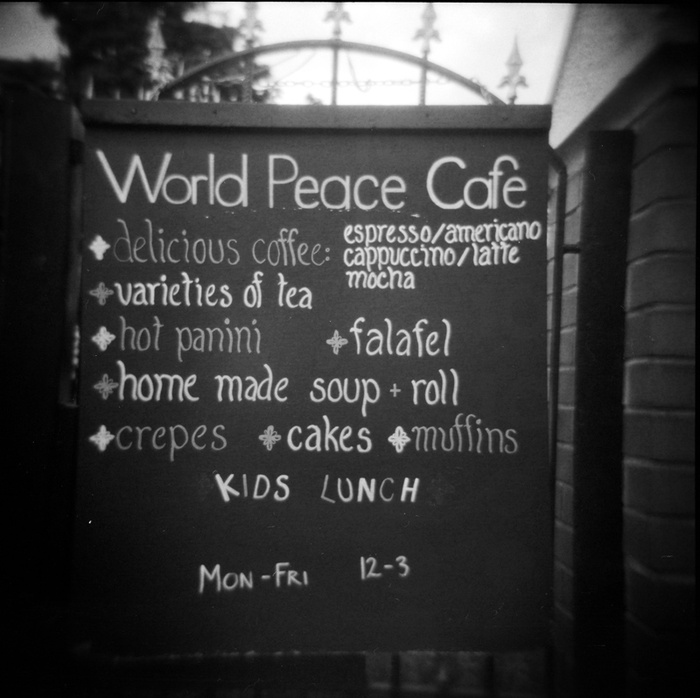 World Peace Cafe
delicious coffee: espresso/americano
cappuccino/latte
mocha
varieties of tea
hot panini falafel
home made soup + roll
crepes cakes muffins
KIDS LUNCH
MON-FRI 12-3